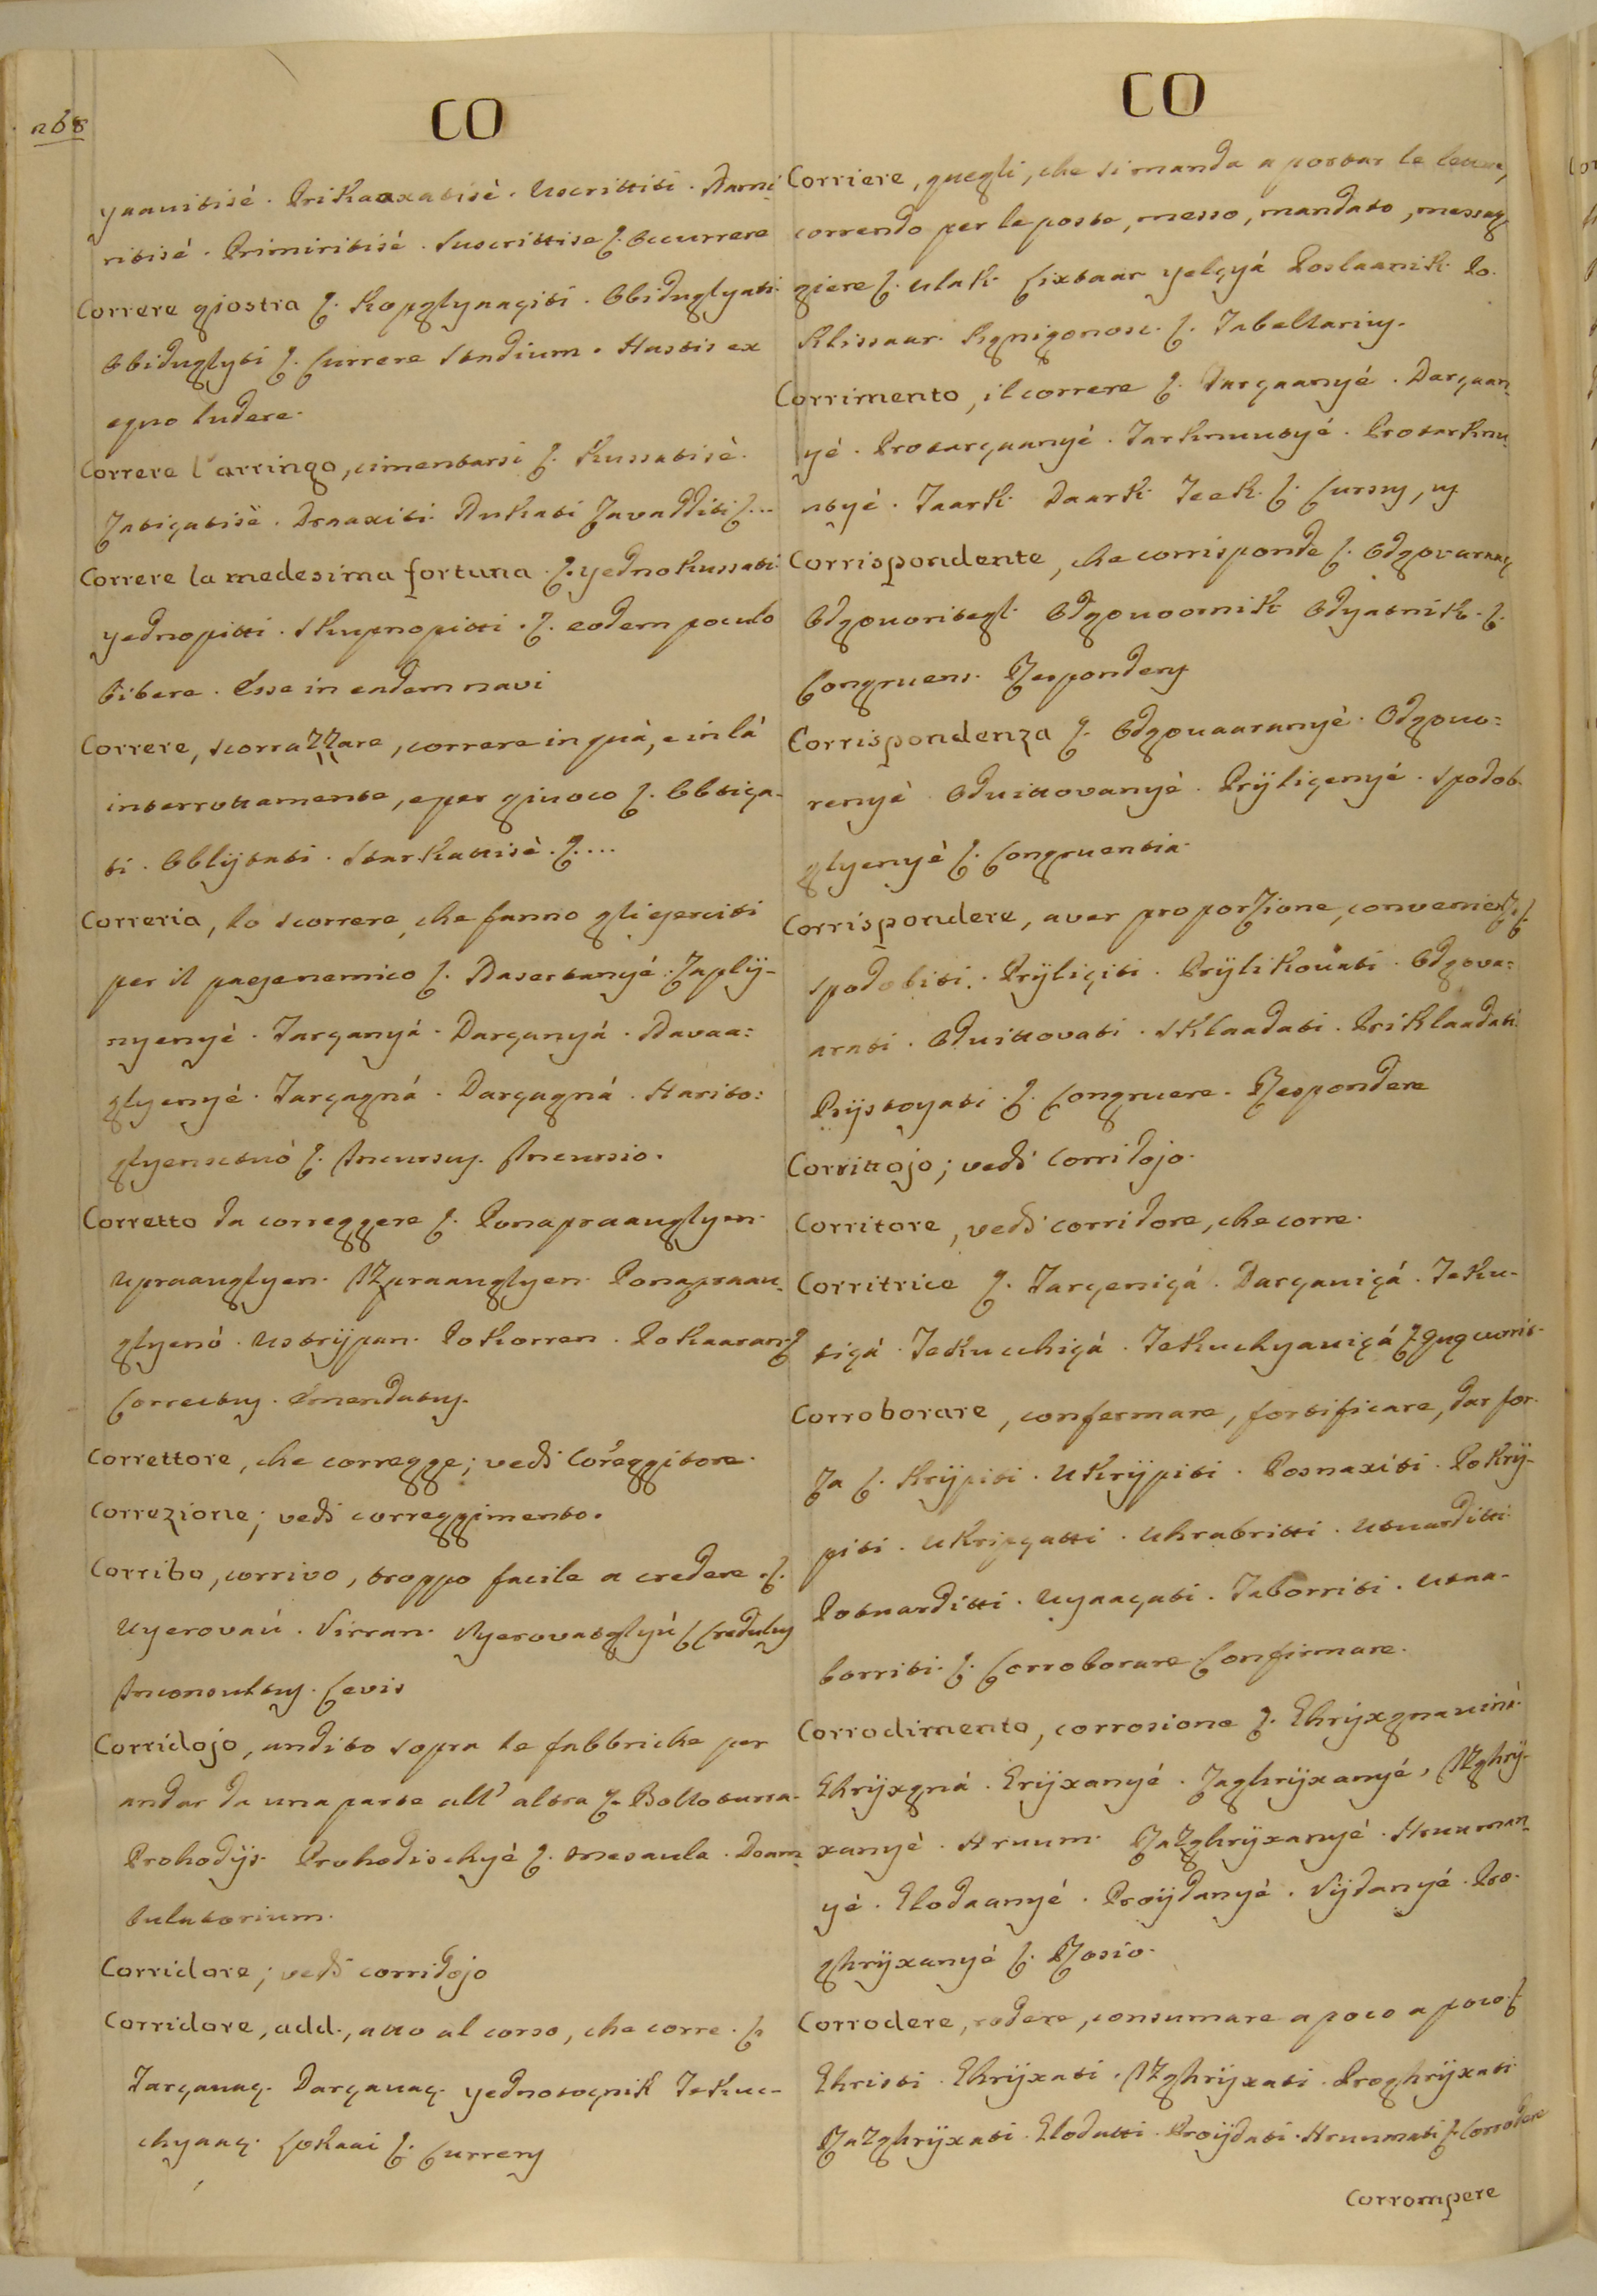 268
CO
yaauitisè. Prikaaxatisè. Uscrittiti. Nami-
ritisè. Primiritisè. Suscrittise ſ. Occurrere
Correre giostra ſ. Kopglyaaçiti. Obiduglyati.
Obiduglyti ſ. Currere Stadium. Hastis ex
equo ludere.
Correre l'arringo, cimentarsi ſ. Kussatisè.
Zatiçatisè. Draaxiti. Nukati Zavadditi ſ...
Correre la medesima fortuna ſ. yednokussati
yednopitti. Skupnopitti. ſ. eodem poculo
bibere. Esse in eadem navi
Correre, scorrazzare, correre in quà, e in là
interrottamente, e per giuoco ſ. Obtiça-
ti. Oblÿtati. Starkattisè. ſ....
Correria, lo scorrere, che fanno gli eserciti
per il paese nemico ſ. Nasertanyé. Zaplÿ-
nyenyè. Tarçanyá. Darçanyá. Navaa:
glyenyé. Tarçagná. Darçagná. Harito:
glyensctuò ſ. Incursuʒ. Incursio.
Corretto da correggere ſ. Ponapraauglyen.
Upraauglyen. Izpraauglyen. Ponapraau-
glyenò. Ustrÿpan. Pokorren. Pokaaran ſ
Correctuʒ. Emendatuʒ.
Correttore, che corregge; vedi Correggitore.
Correzione; vedi correggimento.
Corribo, corrivo, troppo facile a credere. ſ.
Uyerovaú. Virran. Vyerovatglyú ſ Creduluʒ
Inconsultuʒ. Levis
Corridojo, andito sopra le fabbriche per
andar da una parte all' altra ſ. Balloturra.
Prohodÿs. Prohodischyé ſ. Mesaula. Deam-
bulatorium.
Corridore; vedi corridojo
Corridore, add., atto al corso, che corre. ſ.
Tarçauaç. Darçauaç. yednotoçnik Tekuc-
chyaaç. Sokaai ſ. Currenʒ
CO
Corriere, quegli, che si manda a portar le lettere,
correndo per le poste, messo, mandato, messag-
giere ſ. Ulak. Cixtaar yelçyá Poslaanik. Po.
klissaar. Kgnigonosc. ſ. Tabellariuʒ.
Corrimento, il correre ſ. Tarçaanyé. Darçaan-
yé. Protarçaanyé. Tarknuutyé. Protarknu-
utyé. Taark. Daark. Teek. ſ. Cursuʒ, uʒ
Corrispondente, che corrisponde ſ. Odgovaraaç
Odgouoritegl. Odgouoornik Odyatnik. ſ.
Congruens. Respondenʒ
Corrispondenza ſ. Odgouaaranyé. Odgouo:
renyé. Oduittovanyé. Prÿliçenyé. Spodob-
glyenyè ſ. Congruentia.
Corrispondere, aver proporzione, convenienz. ſ.
Spodobiti. Prÿliçiti. Prÿlikouati. Odgova:
arati. Oduittovati. Sklaadati. Priklaadati.
Prÿstoyati. ſ. Congruere. Respondere
Corrittojo; vedi corridojo.
Corritore, vedi corridore, che corre.
Corritrice ſ. Tarçeniçá. Darçauiçá. Teku-
tiçá. Tekucchiçá. Tekuchyauiçá ſ
Corroborare, confermare, fortificare, dar for-
za ſ. Krÿpiti. Ukrÿpiti. Posnaxiti. Pokrÿ-
piti. Ukripçatti. Uhrabritti. Utuarditti.
Potuarditti. Uyaaçati. Taborriti. Utaa-
borriti. ſ. Corroborare. Confirmare.
Corrodimento, corrosione ſ. Ghrÿxgnauinè.
Ghrÿxgná. Grÿxanyé. Zaghrÿxanyé. Izghrÿ-
xanyé. Hruum. Razghrÿxanyé. Hruuman-
yé. Glodaanyé. Proÿdanyé. Vÿdanyé. Pro-
ghrÿxanyé ſ. Rosio.
Corrodere, rodere, consumare a poco a poco ſ
Ghristi. Ghrÿxati. Izghrÿxati. Proghrÿxati
Razghrÿxati. Glodatti. Proÿdati. Hruumati ſ. Corrodere
Corrompere